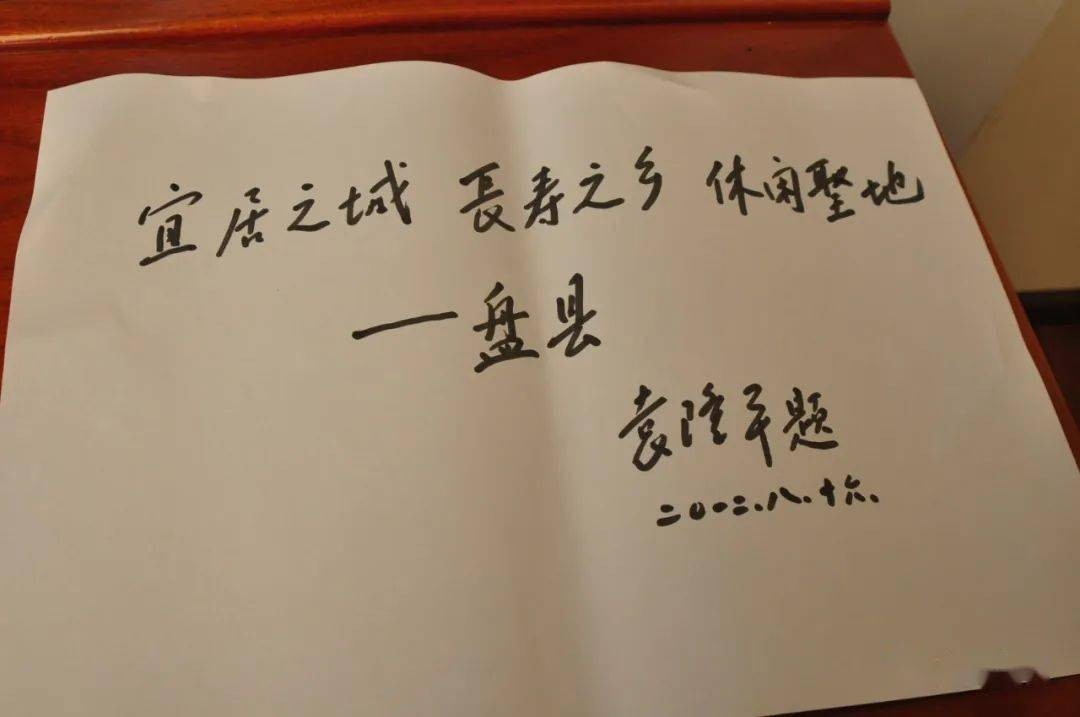 宜居之城 長寿之乡 休闲聖地
—盘县
袁隆平题
二〇一二、八、十六、